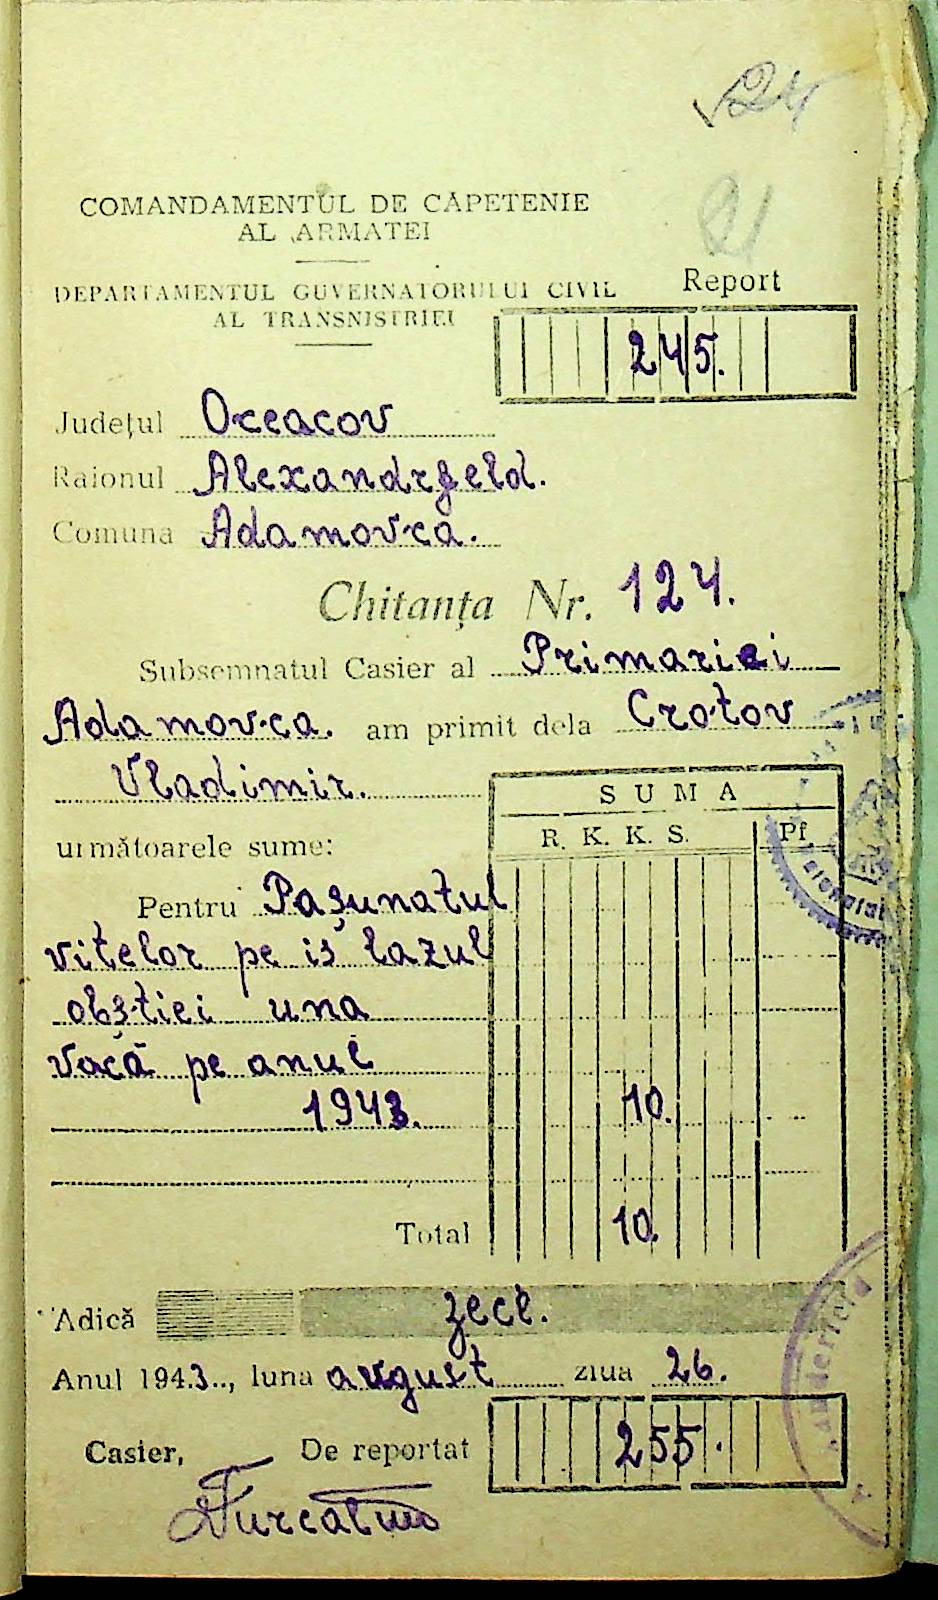 124
21
COMANDAMENTUL DE CĂPETENIE
AL ARMATEI
DEPARTAMENTUL GUVERNATORULUI CIVIL
AL TRANSNISTRIEI
Report
245.
Județul Oceacov
Raionul Alexandrfeld.
Comuna Adamovca.
Chitanța Nr. 124.
Subsemnatul Casier al Primariei
Adamovca. am primit dela Crotov
Vladimir.
SUMA
următoarele sume:
R. K. K. S. Pf
Pentru Pașunatul
vitelor pe islazul
obștiei una
vacă pe anul
1943. 10.
Total 10.
Adică zece.
Anul 1943.., luna avgust ziua 26.
Casier, De reportat 255.